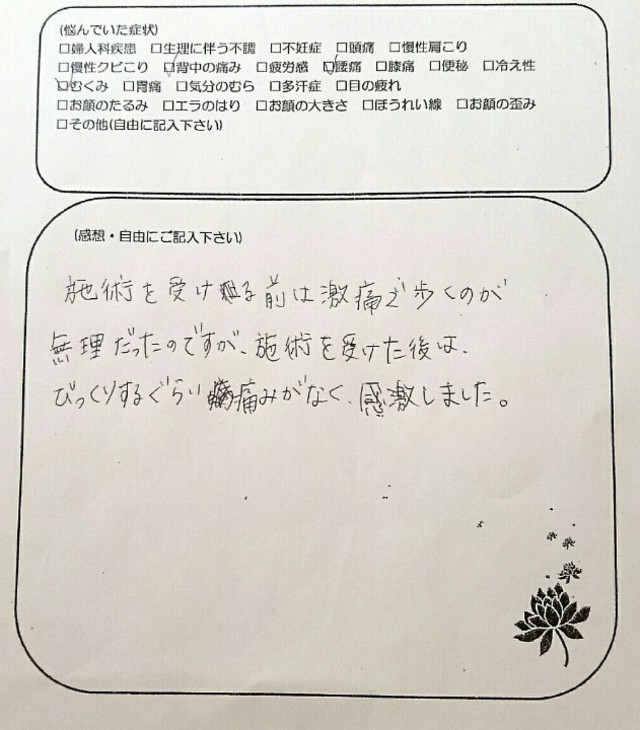 (悩んでいた症状)
□婦人科疾患 □生理に伴う不調 □不妊症 □頭痛 □慢性肩こり
□慢性クビこり ☑背中の痛み □疲労感 ☑腰痛 □膝痛 □便秘 □冷え性
☑むくみ □胃痛 □気分のむら □多汗症 □目の疲れ
□お顔のたるみ □エラのはり □お顔の大きさ □ほうれい線 □お顔の歪み
□その他(自由に記入下さい)
(感想・自由にご記入下さい)
施術を受ける前は激痛で歩くのが
無理だったのですが、施術を受けた後は、
びっくりするぐらい痛みがなく、感激しました。